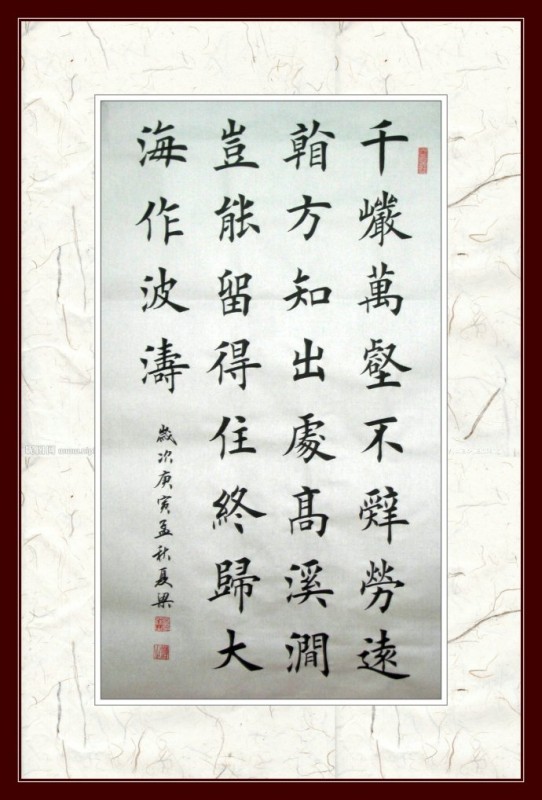 千巗萬壑不辭勞遠
看方知出處高溪澗
豈能留得住終歸大
海作波濤
歲次庚寅孟秋夏梁